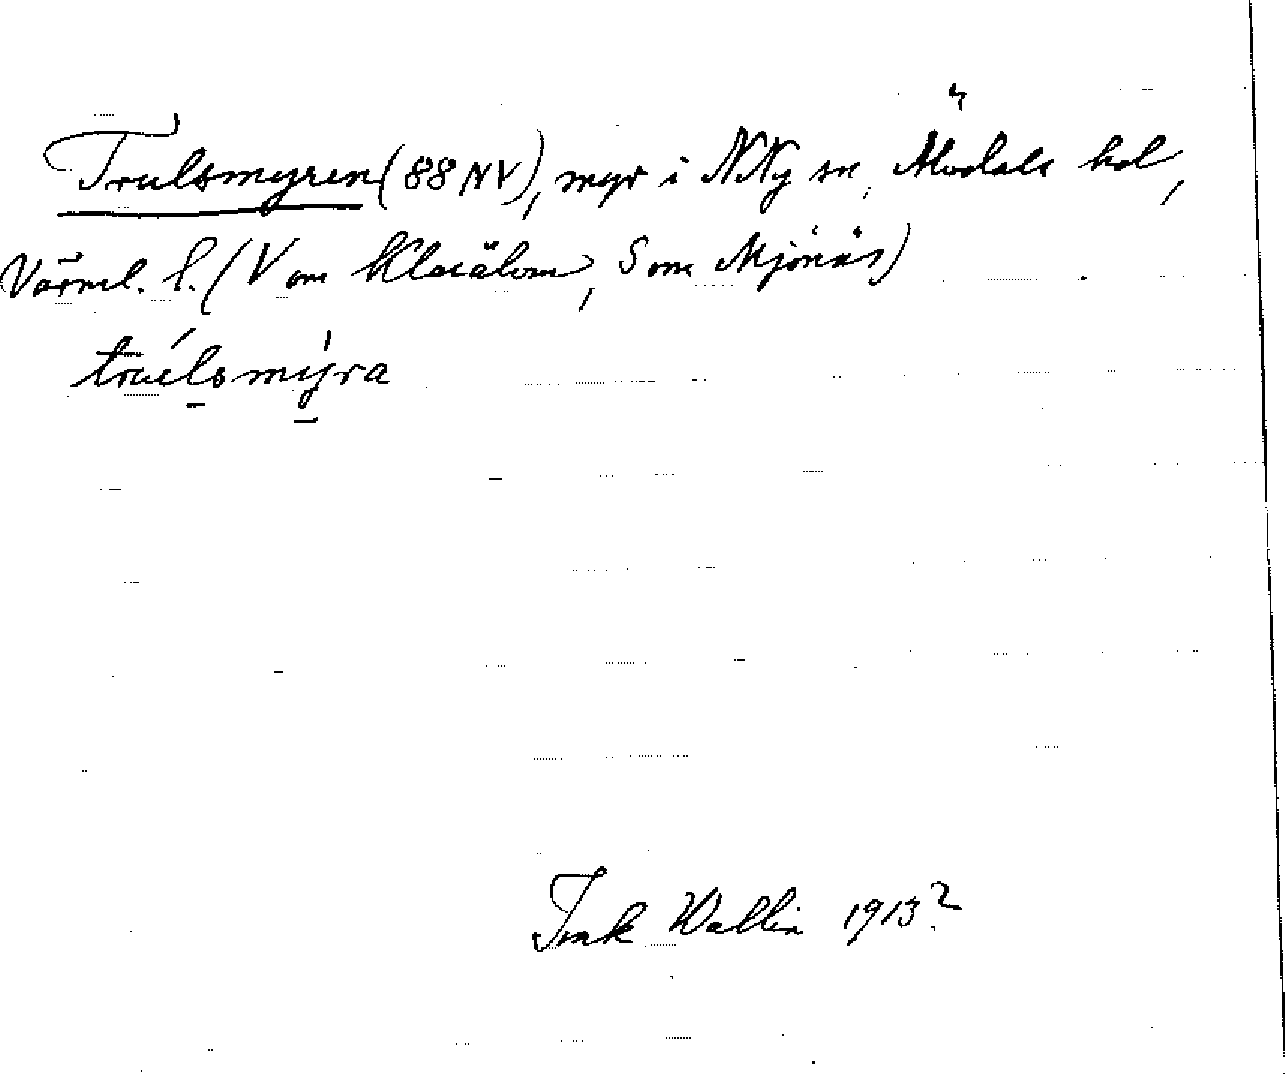 Trulsmyren (88 NV), myr i N Ny sn, Älvdals hd,
Värml. l. (V om Klarälven, S om Mjönäs)
trúlsmýra
Wallin 1913?